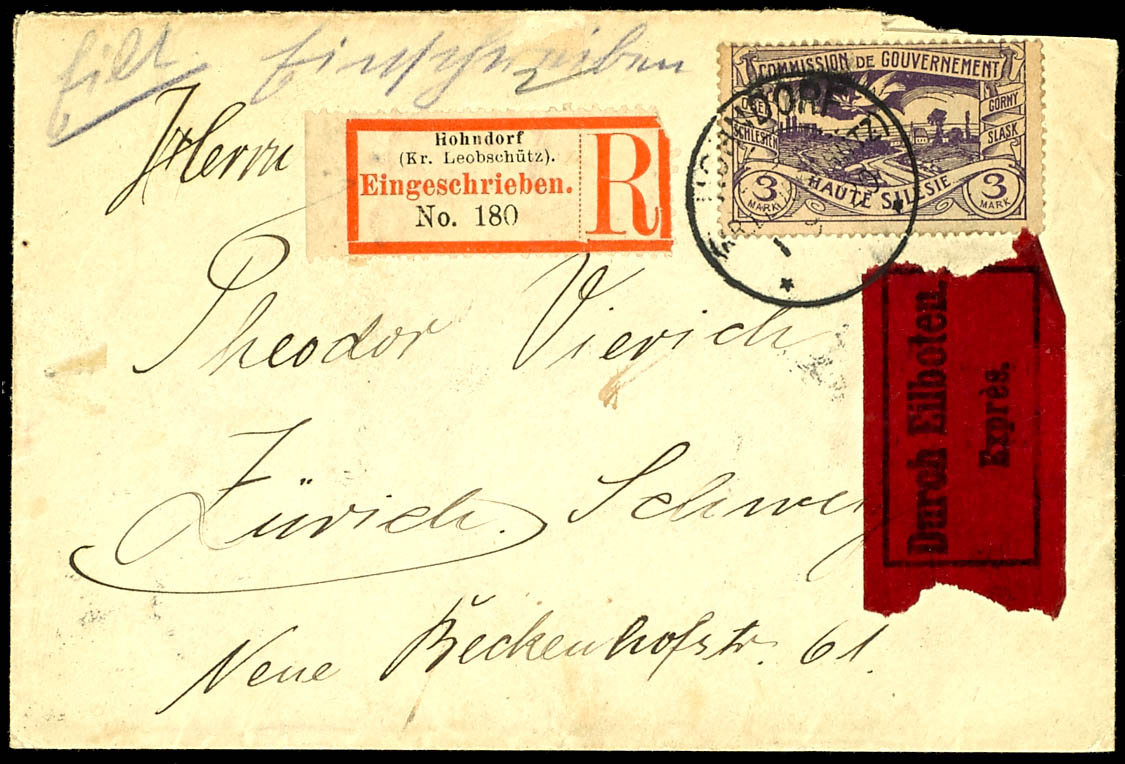 Eilt Einschreiben
Herrn
Hohndorf
(Kr. Leobschütz).
Eingeschrieben.
No. 180
R
COMMISSION DE GOUVERNEMENT
OBER SCHLESIEN
GORNY SLASK
HAUTE SILESIE
3 MARK
3 MARK
HOHNDORF
Theodor Vierich
Zürich. Schweiz
Neue Beckenhofstr. 61.
Durch Eilboten.
Exprès.